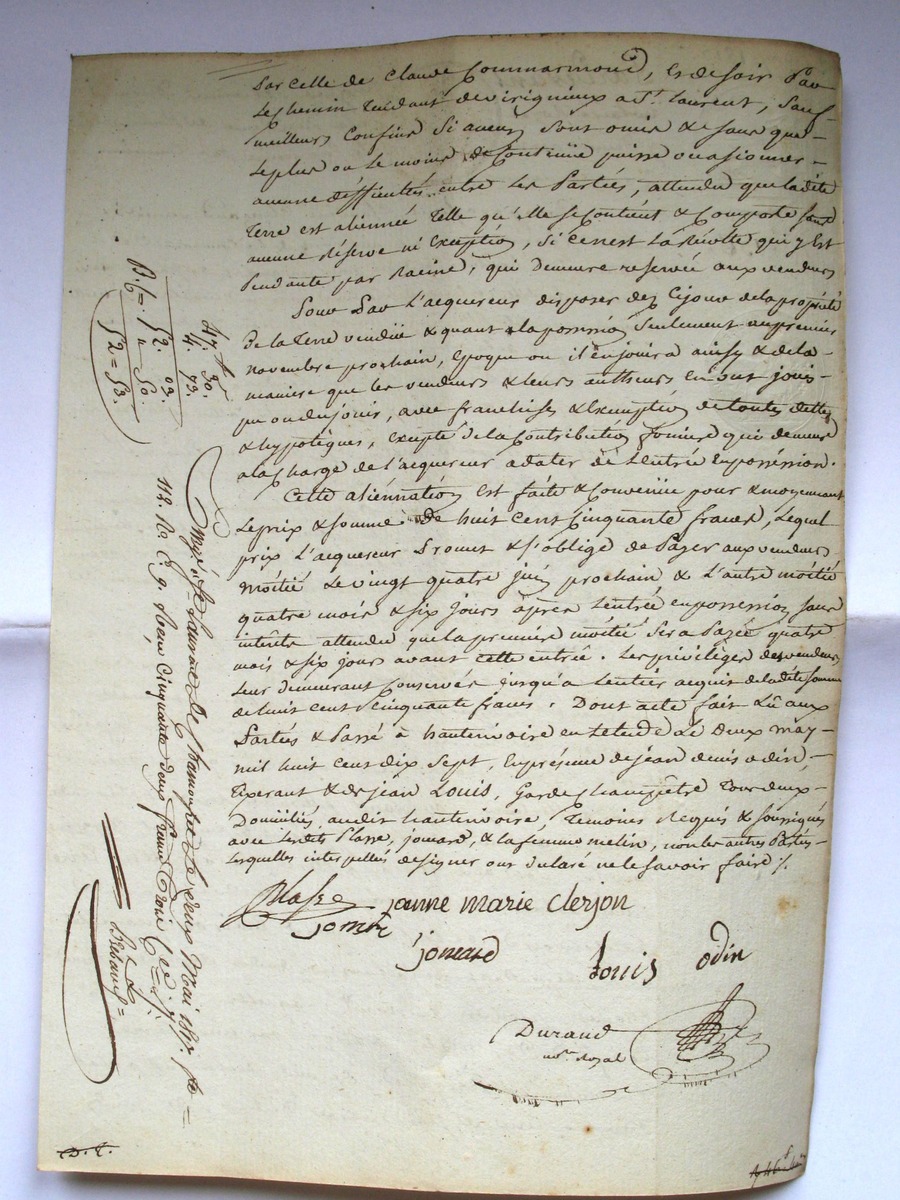 par celle de Claude Commarmond, et de soir par
le chemin tendant de virignieux a St. laurent, sauf
meilleurs Confins Si aucuns sont omis & sans que
le plus ou le moins de Contenüe puisse occasionner
aucune difficultés entre les Parties, attendu que ladite
terre est alienneé telle qu'elle se Contient & Comporte sans
aucune Réserve ni Exception, Si ce n'est la Récolte qui y Est
Pendante par Racine, qui demeure reservée aux vendeurs
Pour par l'acquereur disposer dez Cejour de la propriété
de la terre vendüe & quant a la possession Seulement au premier
novembre prochain, époque ou il en jouira ainsy & de la
maniere que les vendeurs & leurs autheurs en ont joui
pu ou du jouir, avec franchises & Exemption de toutes dettes
& hypotèques, excepté de la Contribution fonciere qui demeure
a la Charge de l'acquereur a dater de l'entrée en possession.
Cette aliénnation est faite & Convenüe pour & moyennant
le prix & somme de huit cent Cinquante francs, lequel
prix l'acquereur Promet & s'oblige de Payer aux vendeurs
moitié le vingt quatre juin prochain & l'autre moitié
quatre mois & six jours après l'entrée en possession sans
intérêts attendu que la premiere moitié sera Payée quatre
mois & six jours avant cette entrée. Les privilèges des vendeurs
leur demeurant Conservés jusqu'a l'entier acquit de ladite somme
de huit cent Cinquante francs. Dont acte fait Lû aux
Parties & Passé à hauterivoire en l'etude Le deux may
mil huit cent dix Sept, En présence de jean denis odin,
& de jean Louis, Garde champêtre tous deux
Domiciliés audit hauterivoire, temoins Requis & soussignés
avec lesdits Plasse, jomard, & la femme melin, non les autres Parties
lesquelles interpellées de signer ont declaré ne le savoir faire /.
Plasse
janne marie clerjon
jomard
Louis
odin
Durand
not.re Royal
47. 30.
4. 73.
52. 03.
" 50.
52 = 53.
St laurent de Chamousset le deux Mai 1817. fo
112. Ro C. 9. Reçu cinquante deux francs trois
D. T.